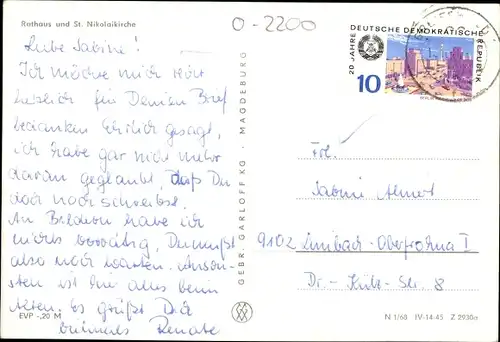 Rathaus und St. Nikolaikirche
0-2200
Liebe Sabine!
Ich möchte mich recht
herzlich für Deinen Brief
bedanken. Ehrlich gesagt,
ich habe gar nicht mehr
daran geglaubt, daß Du
doch noch schreibst.
An Bildern habe ich
nichts vorrätig, Du mußt
also noch warten. Anson-
sten ist hier alles beim
Alten. Es grüßt Dich
Renate
EVP -,20 M
GEBR. GARLOFF KG · MAGDEBURG
20 JAHRE DEUTSCHE DEMOKRATISCHE REPUBLIK
10
Frl.
Sabine
9102 Limbach-Oberfrohna I
Dr.-Külz-Str. 8
N 1/68 IV-14-45 Z 2930n